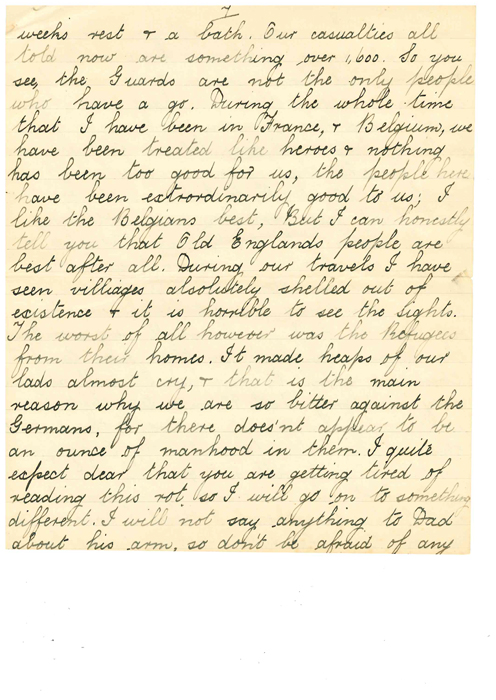 7
weeks rest & a bath. Our casualties all
told now are something over 1,600. So you
see, the Guards are not the only people
who have a go. During the whole time
that I have been in France, & Belgium, we
have been treated like heroes & nothing
has been too good for us, the people here
have been extrordinarily good to us; I
like the Belgians best, But I can honestly
tell you that Old Englands people are
best after all. During our travels I have
seen villiages absolutely shelled out of
existence & it is horrible to see the sights.
The worst of all however was the Refugees
from their homes. It made heaps of our
lads almost cry, & that is the main
reason why we are so bitter against the
Germans, for there does'nt appear to be
an ounce of manhood in them. I quite
expect dear that you are getting tired of
reading this rot so I will go on to something
different. I will not say anything to Dad
about his arm, so don't be afraid of any